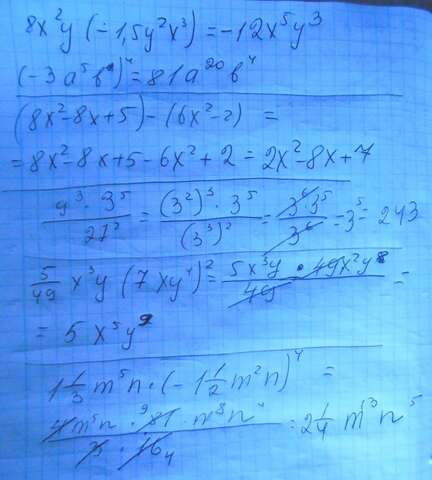 8x²y (-1,5y²x³) = -12x⁵y³
(-3a⁵b)⁴ = 81a²⁰b⁴
(8x²-8x+5)-(6x²-2) =
= 8x²-8x+5-6x²+2 = 2x²-8x+7
9³·3⁵/27² = (3²)³·3⁵/(3³)² = 3⁶·3⁵/3⁶ = 3⁵ = 243
5/49 x³y (7xy⁴)² = 5x³y·49x²y⁸/49 =
= 5x⁵y⁹
1 1/3 m⁵n·(-1 1/2 m²n)⁴ =
4m⁵n·⁹81·m⁸n⁴/3·16₄ = 2 1/4 m¹³n⁵